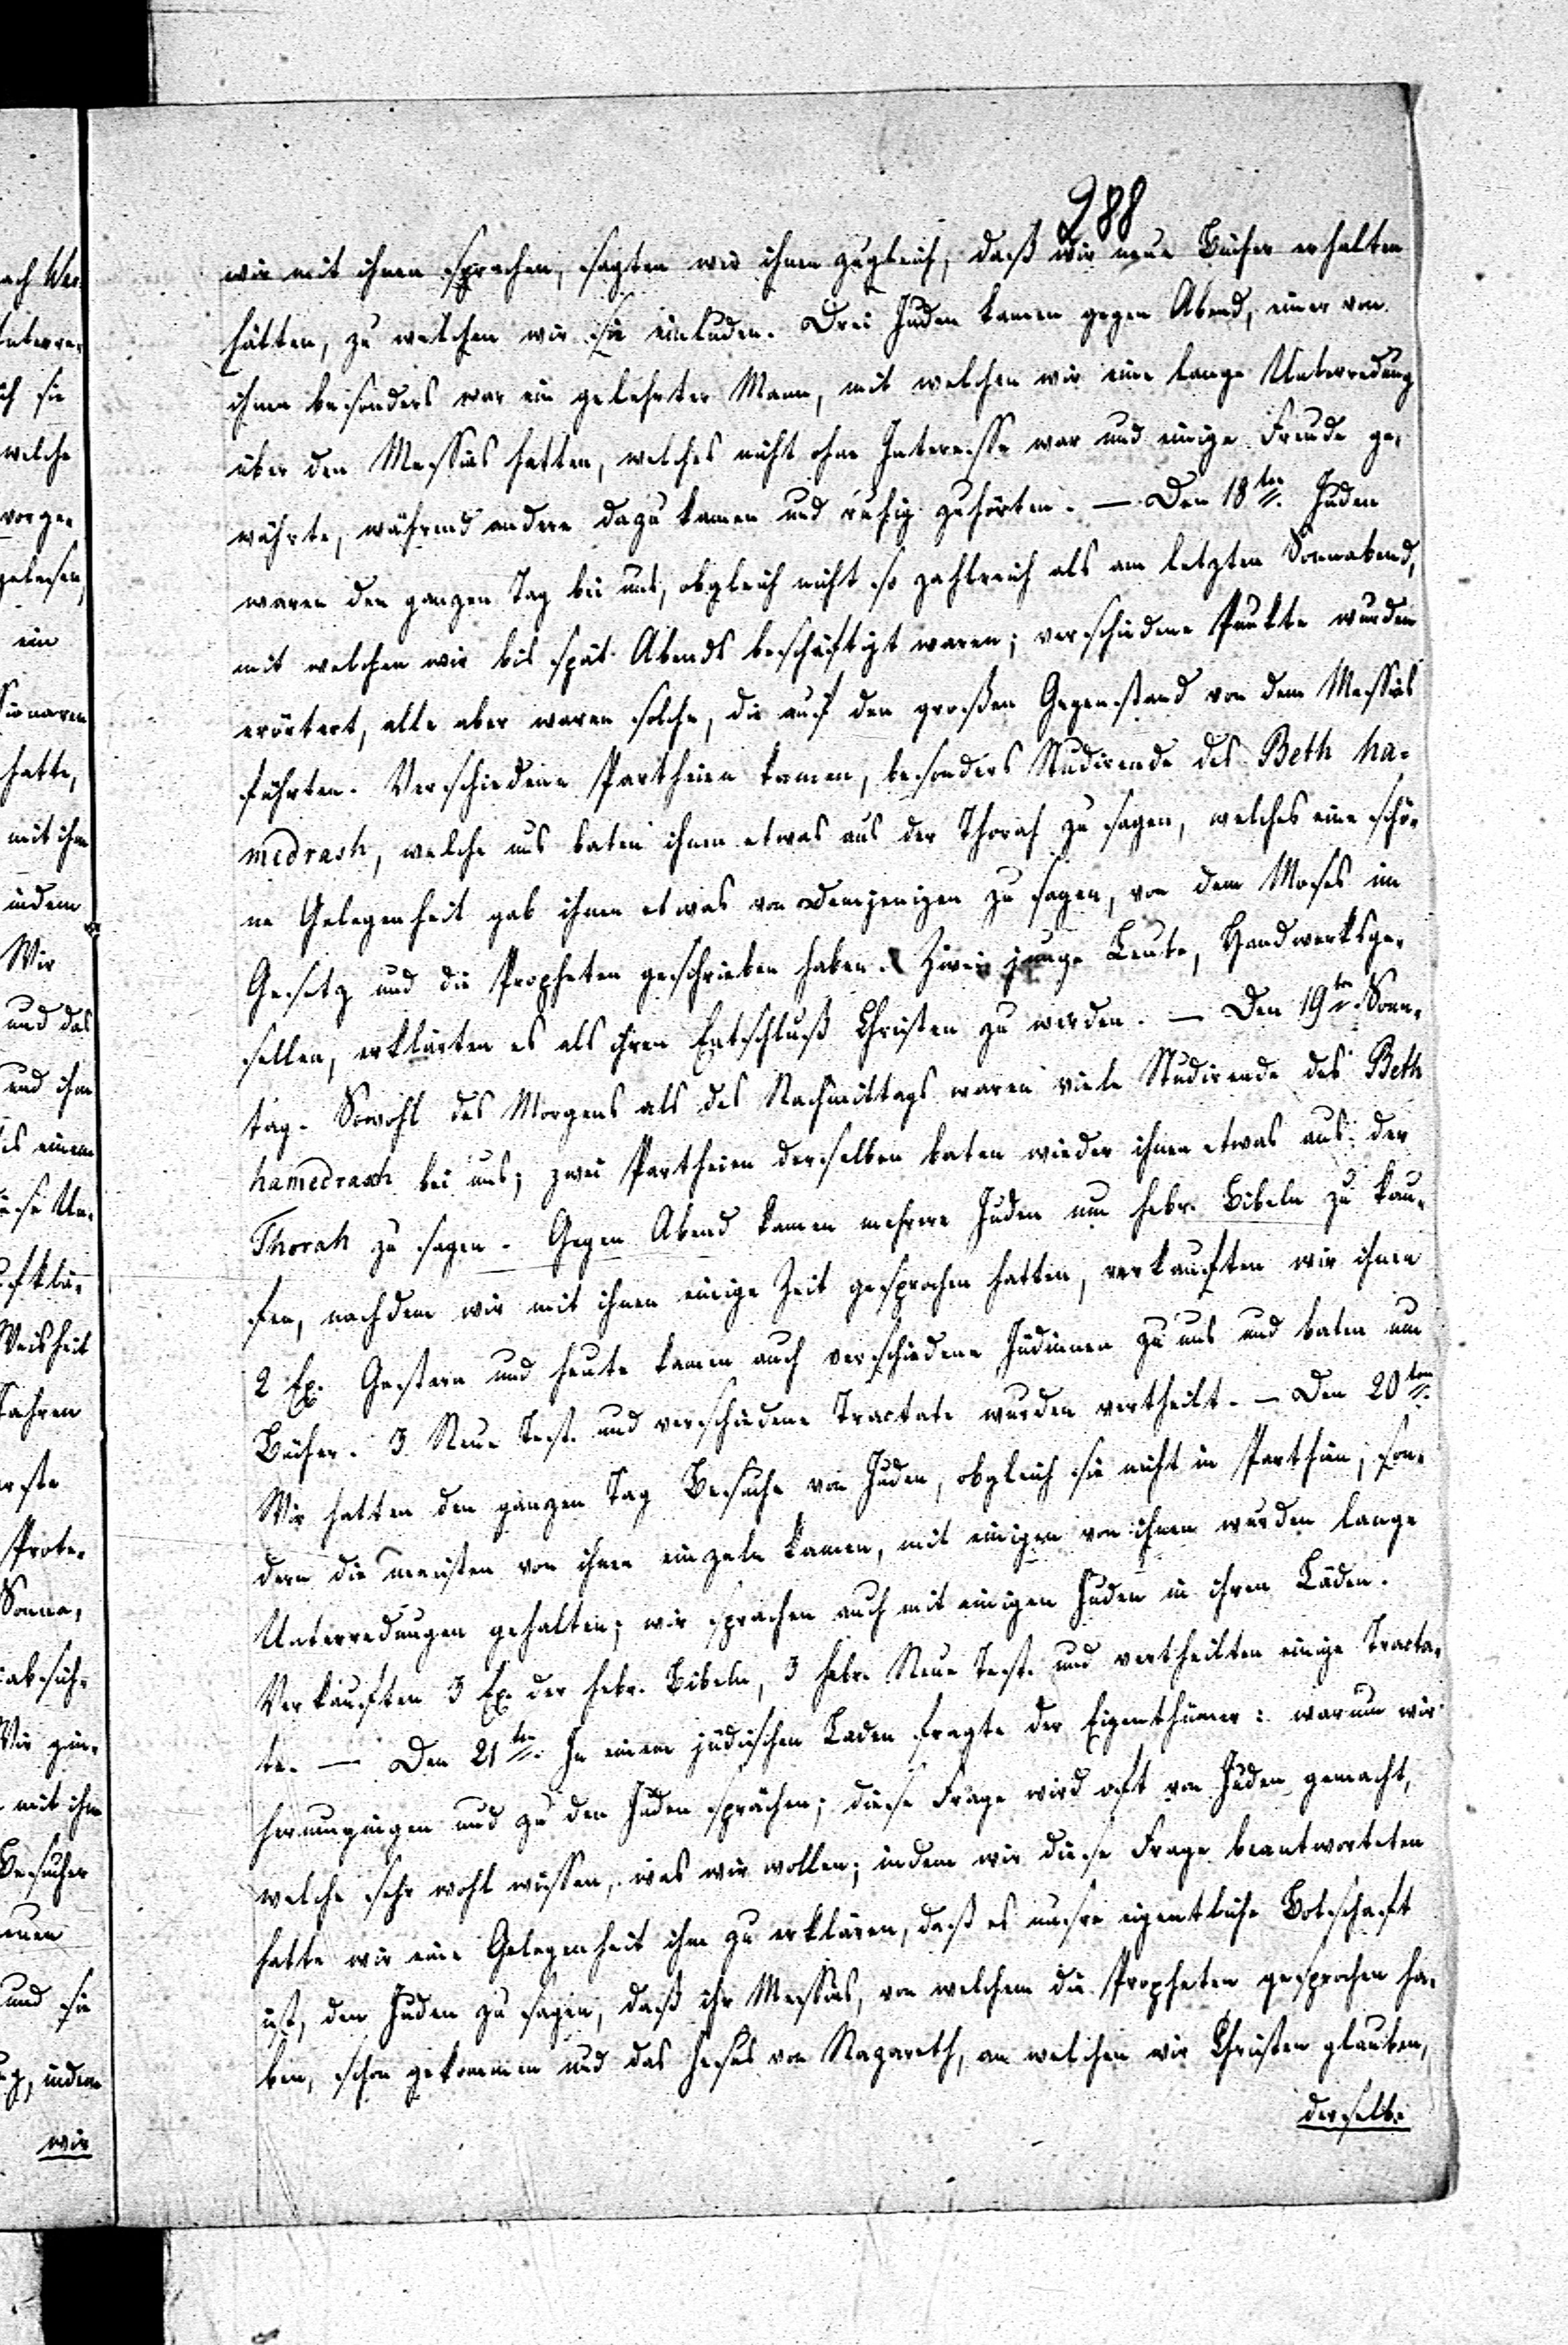 288
wir mit ihnen sprachen, sagten wir ihnen zugleich, daß wir neue Bücher erhalten
hätten, zu welchen wir sie einluden. Drei Juden kamen gegen Abend, einer von
ihnen besonders war ein gelehrter Mann, mit welchen wir eine lange Unterredung
über den Messias hatten, welches nicht ohne Interesse war und einige Freude ge-
währte, während andere dazu kamen und ruhig zuhörten. — Den 18ten. Juden
waren den ganzen Tag bei uns, obgleich nicht so zahlreich als am letzten Sonnabend,
mit welchen wir bis spät Abends beschäftigt waren; verschiedene Punkte wurden
erörtert, alle aber waren solche, die auf den großen Gegenstand von dem Messias
führten. Verschiedene Partheien kamen, besonders Studirende des Beth ha-
medrash, welche uns baten ihnen etwas aus der Thorah zu sagen, welches eine schö-
ne Gelegenheit gab ihnen etwas von Demjenigen zu sagen, von dem Moses im
Gesetz und die Propheten geschrieben haben. Zwei junge Leute, Handwerksge-
sellen, erklärten es als ihren Entschluß Christen zu werden. — Den 19ten Sonn-
tag. Sowohl des Morgens als des Nachmittags waren viele Studirende des Beth
hamedrash bei uns; zwei Partheien derselben baten wieder ihnen etwas aus der
Thorah zu sagen. Gegen Abend kamen mehrere Juden um hebr. Bibeln zu kau-
fen, nachdem wir mit ihnen einige Zeit gesprochen hatten, verkauften wir ihnen
2 Ex. Gestern und heute kamen auch verschiedene Jüdinnen zu uns und baten um
Bücher. 3 Neue Test. und verschiedene Tractate wurden vertheilt. — Den 20ten.
Wir hatten den ganzen Tag Besuche von Juden, obgleich sie nicht in Partheien, son-
dern die meisten von ihnen einzeln kamen, mit einigen von ihnen wurden lange
Unterredungen gehalten; wir sprachen auch mit einigen Juden in ihren Läden.
Verkauften 3 Ex. der hebr. Bibeln, 3 hebr. Neue Test. und vertheilten einige Tracta-
te. — Den 21ten. In einem jüdischen Laden fragte der Eigenthümer: warum wir
herumgingen und zu den Juden sprächen; diese Frage wird oft von Juden gemacht,
welche sehr wohl wissen, was wir wollen; indem wir diese Frage beantworteten
hatte wir eine Gelegenheit ihm zu erklären, daß es unsre eigentliche Botschaft
ist, den Juden zu sagen, daß ihr Messias, von welchem die Propheten gesprochen ha-
ben, schon gekommen und das Jesus von Nazareth, an welchen wir Christen glauben,
derselbe
welche
vorge-
gelesen,
ein
hatte,
mit ihm
indem
Wir
und das
und ihm
Weisheit
Prote-
mit ihm
Besucher
und sie
indem
wir